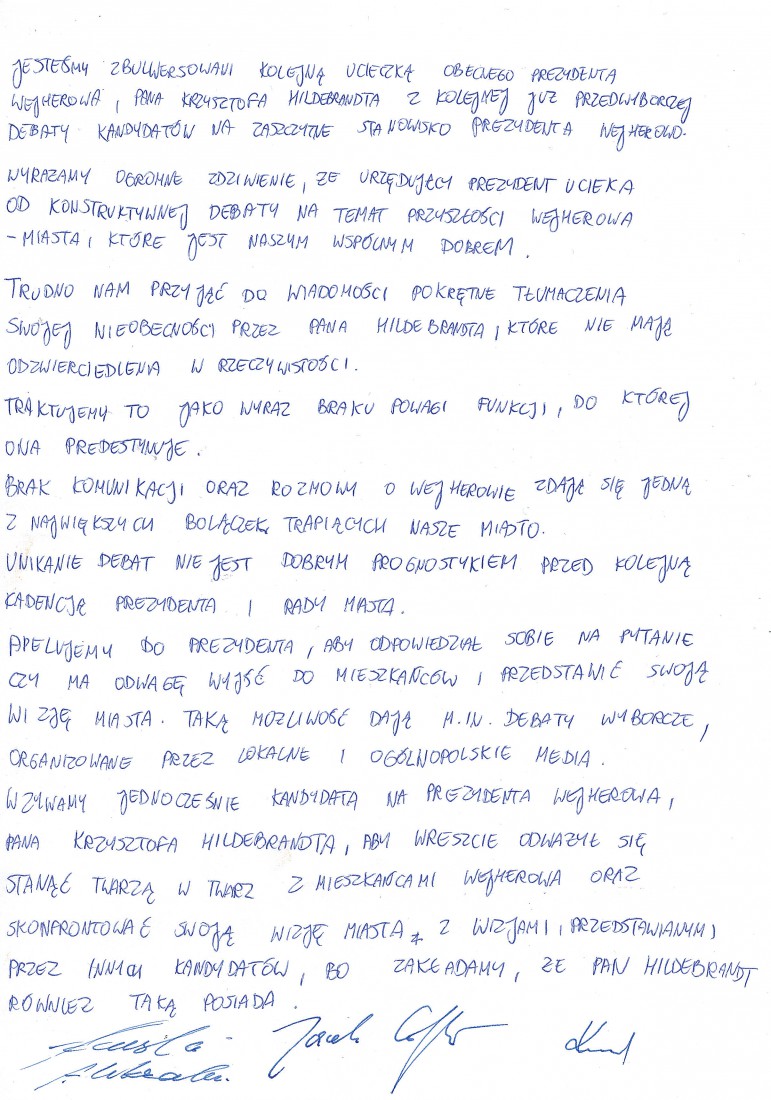 JESTEŚMY ZBULWERSOWANI KOLEJNĄ UCIECZKĄ OBECNEGO PREZYDENTA
WEJHEROWA, PANA KRZYSZTOFA HILDEBRANDTA Z KOLEJNEJ JUŻ PRZEDWYBORCZEJ
DEBATY KANDYDATÓW NA ZASZCZYTNE STANOWISKO PREZYDENTA WEJHEROWO.
WYRAŻAMY OGROMNE ZDZIWIENIE, ŻE URZĘDUJĄCY PREZYDENT UCIEKA
OD KONSTRUKTYWNEJ DEBATY NA TEMAT PRZYSZŁOŚCI WEJHEROWA
- MIASTA, KTÓRE JEST NASZYM WSPÓLNYM DOBREM.
TRUDNO NAM PRZYJĄĆ DO WIADOMOŚCI POKRĘTNE TŁUMACZENIA
SWOJEJ NIEOBECNOŚCI PRZEZ PANA HILDEBRANDTA, KTÓRE NIE MAJĄ
ODZWIERCIEDLENIA W RZECZYWISTOŚCI.
TRAKTUJEMY TO JAKO WYRAZ BRAKU POWAGI FUNKCJI, DO KTÓREJ
ONA PREDESTYNUJE.
BRAK KOMUNIKACJI ORAZ ROZMOWY O WEJHEROWIE ZDAJĄ SIĘ JEDNĄ
Z NAJWIĘKSZYCH BOLĄCZEK, TRAPIĄCYCH NASZE MIASTO.
UNIKANIE DEBAT NIE JEST DOBRYM PROGNOSTYKIEM PRZED KOLEJNĄ
KADENCJĄ PREZYDENTA I RADY MIASTA.
APELUJEMY DO PREZYDENTA, ABY ODPOWIEDZIAŁ SOBIE NA PYTANIE
CZY MA ODWAGĘ WYJŚĆ DO MIESZKAŃCÓW I PRZEDSTAWIĆ SWOJĄ
WIZJĘ MIASTA. TAKĄ MOŻLIWOŚĆ DAJĄ M.IN. DEBATY WYBORCZE,
ORGANIZOWANE PRZEZ LOKALNE I OGÓLNOPOLSKIE MEDIA.
WZYWAMY JEDNOCZEŚNIE KANDYDATA NA PREZYDENTA WEJHEROWA,
PANA KRZYSZTOFA HILDEBRANDTA, ABY WRESZCIE ODWAŻYŁ SIĘ
STANĄĆ TWARZĄ W TWARZ Z MIESZKAŃCAMI WEJHEROWA ORAZ
SKONFRONTOWAĆ SWOJĄ WIZJĘ MIASTA Z WIZJAMI, PRZEDSTAWIANYMI
PRZEZ INNYCH KANDYDATÓW, BO ZAKŁADAMY, ŻE PAN HILDEBRANDT
RÓWNIEŻ TAKĄ POSIADA.
Jacek